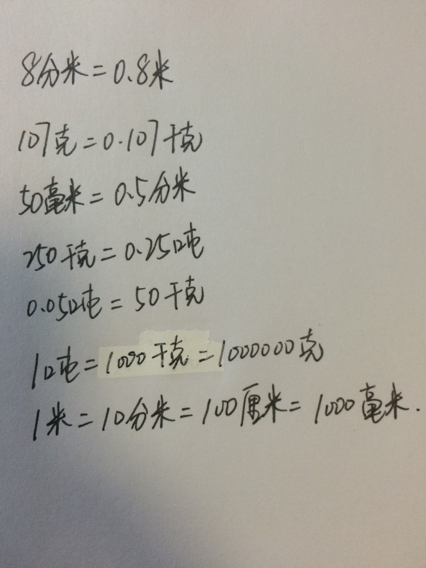 8分米=0.8米
107克=0.107千克
50毫米=0.5分米
250千克=0.25吨
0.05吨=50千克
1吨=1000千克=1000000克
1米=10分米=100厘米=1000毫米.